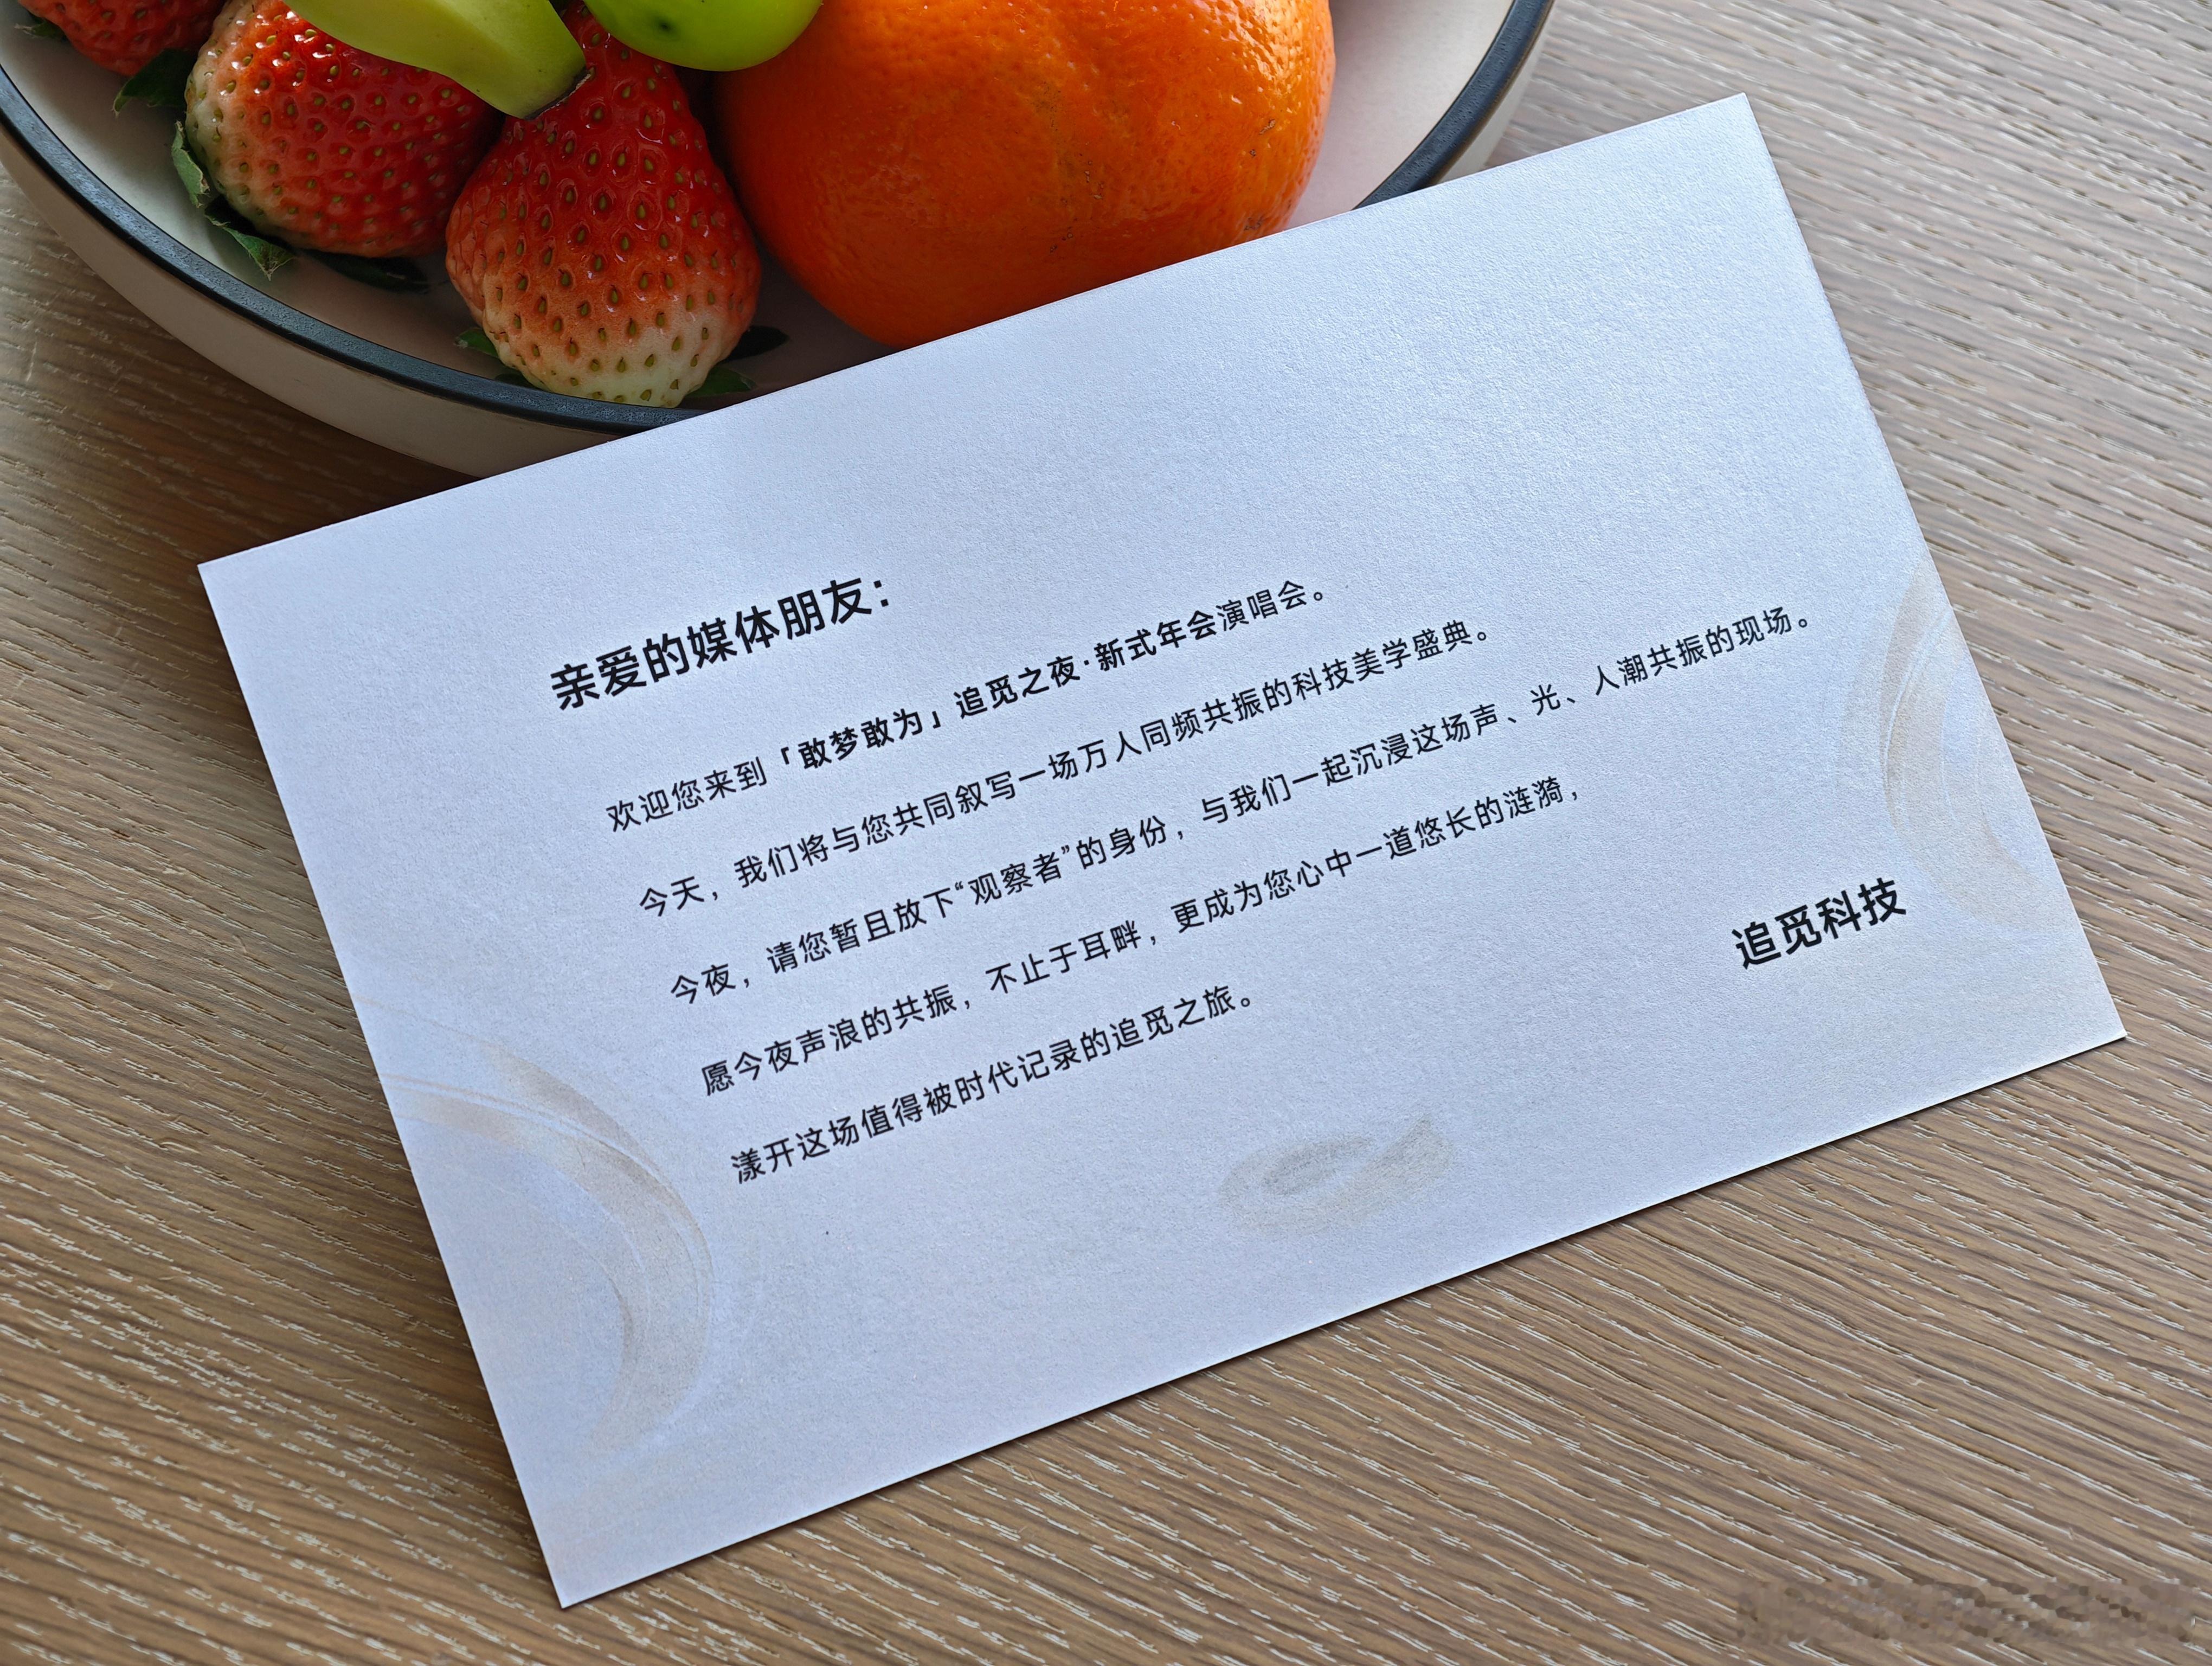 亲爱的媒体朋友：
欢迎您来到「敢梦敢为」追觅之夜·新式年会演唱会。
今天，我们将与您共同叙写一场万人同频共振的科技美学盛典。
今夜，请您暂且放下“观察者”的身份，与我们一起沉浸这场声、光、人潮共振的现场。
愿今夜声浪的共振，不止于耳畔，更成为您心中一道悠长的涟漪，
漾开这场值得被时代记录的追觅之旅。
追觅科技